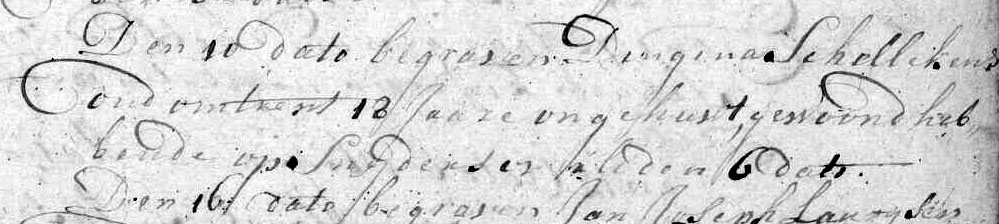 Den 10 dato begraven Dingena Schellekens
oud omtrent 18 Jaare ongehuwt, gewoond heb,
bende op den 6 dato.
Den 16 dato begraven Jan Joseph